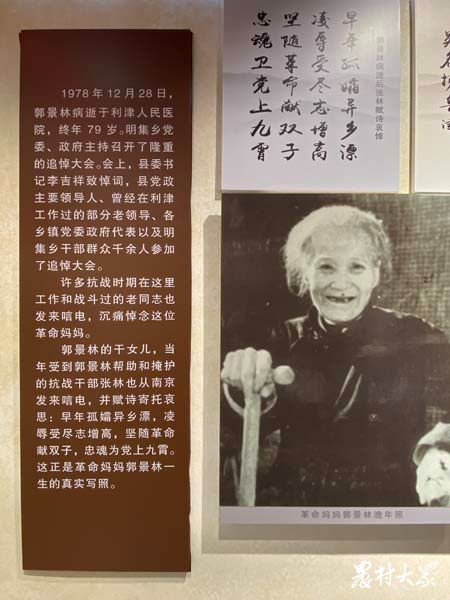 1978年12月28日，
郭景林病逝于利津人民医
院，终年79岁。明集乡党
委、政府主持召开了隆重
的追悼大会。会上，县委书
记李吉祥致悼词，县党政
主要领导人、曾经在利津
工作过的部分老领导、各
乡镇党委政府代表以及明
集乡干部群众千余人参加
了追悼大会。
许多抗战时期在这里
工作和战斗过的老同志也
发来唁电，沉痛悼念这位
革命妈妈。
郭景林的干女儿，当
年受到郭景林帮助和掩护
的抗战干部张林也从南京
发来唁电，并赋诗寄托哀
思：早年孤嬬异乡漂，凌
辱受尽志增高，坚随革命
献双子，忠魂为党上九霄。
这正是革命妈妈郭景林一
生的真实写照。
郭景林病逝后张林赋诗哀悼
早年孤嬬异乡漂
凌辱受尽志增高
坚随革命献双子
忠魂卫党上九霄
革命妈妈郭景林晚年照
农村大众